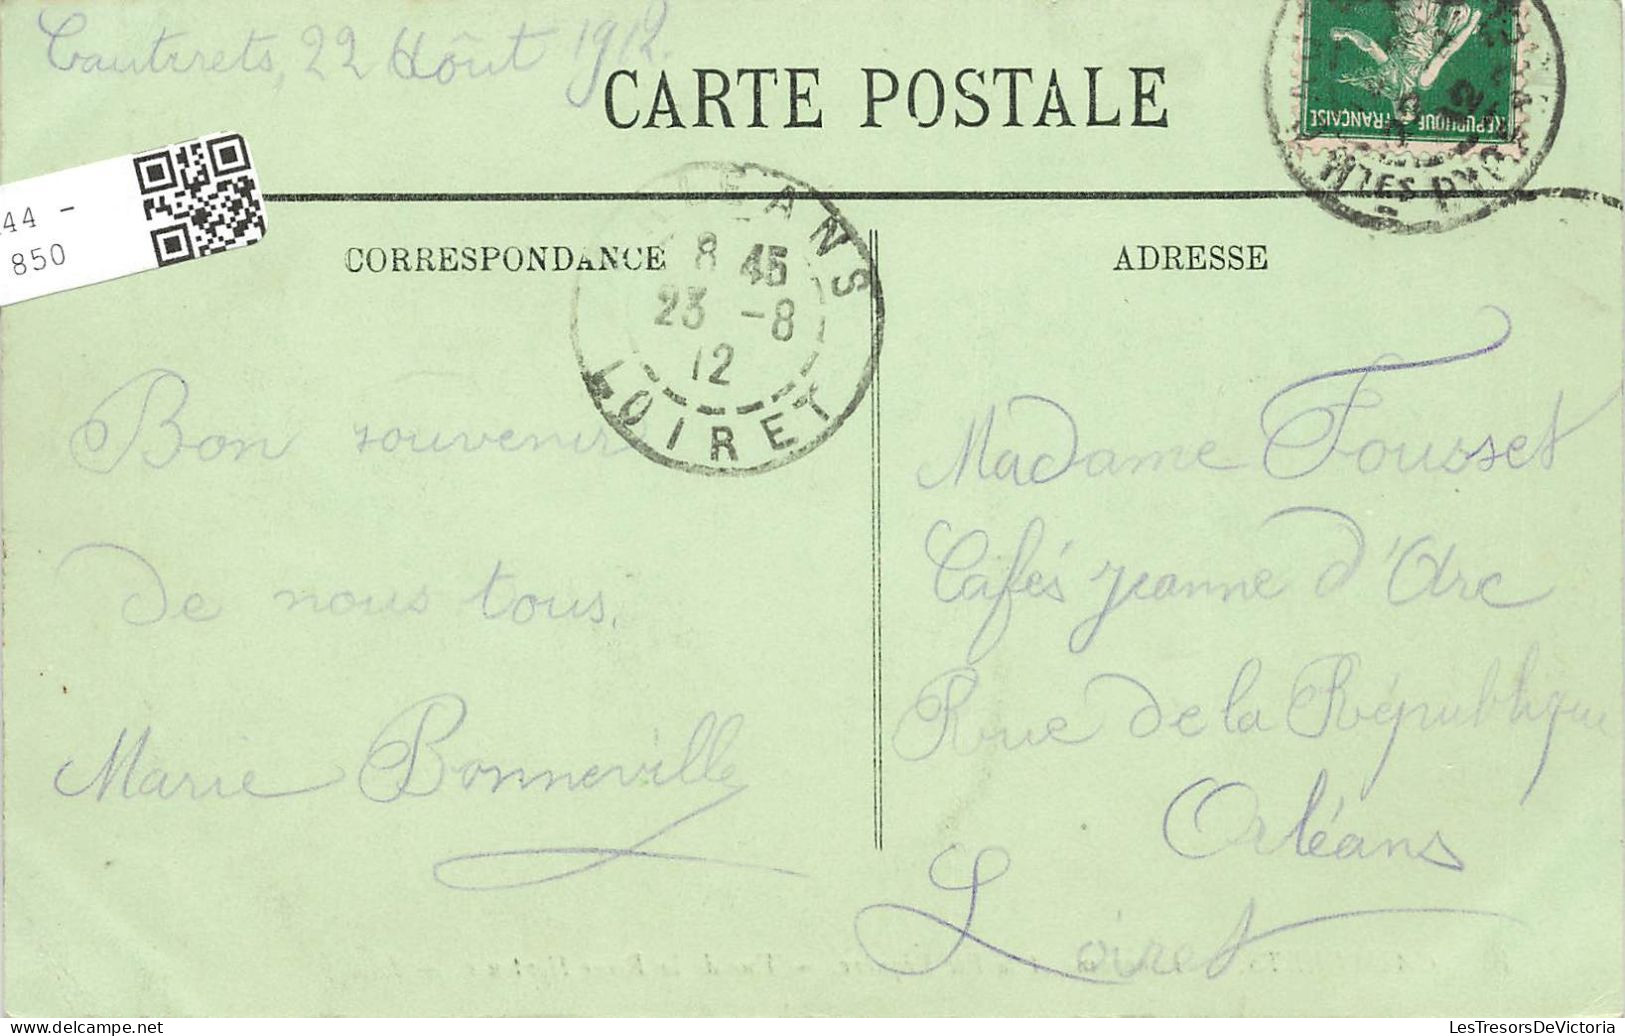 Cauterets, 22 Aôut 1912.
CARTE POSTALE
REPUBLIQUE FRANÇAISE
44 -
850
CORRESPONDANCE
ADRESSE
8 45
23 -8
12
LOIRET
Bon souvenir
de nous tous.
Marie Bonneville
Madame Fousset
Cafés Jeanne d'Arc
Rue de la République
Orléans
Loiret
delcampe.net
LesTresorsDeVictoria